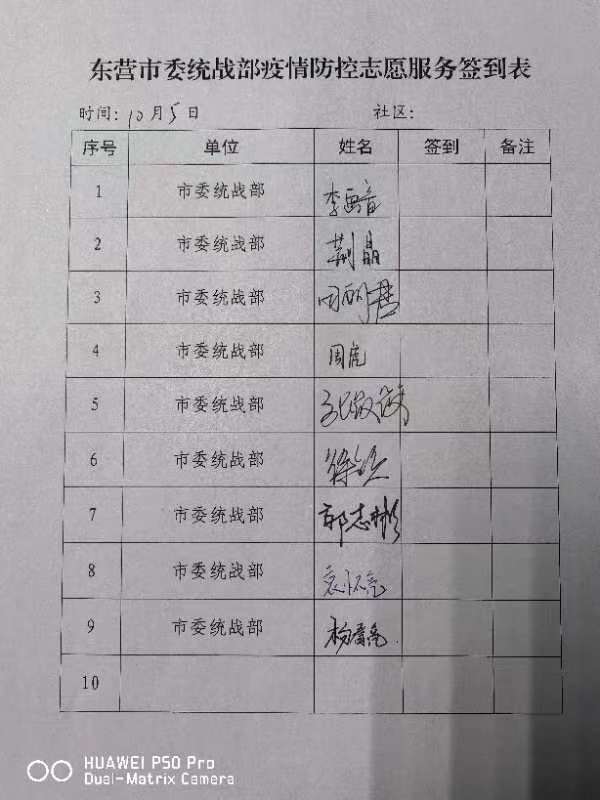 东营市委统战部疫情防控志愿服务签到表
时间: 10月5日 社区:
序号 单位 姓名 签到 备注
1 市委统战部
2 市委统战部 荆晶
3 市委统战部
4 市委统战部 周虎
5 市委统战部
6 市委统战部
7 市委统战部 郭志彬
8 市委统战部 袁怀亮
9 市委统战部
10
HUAWEI P50 Pro
Dual-Matrix Camera